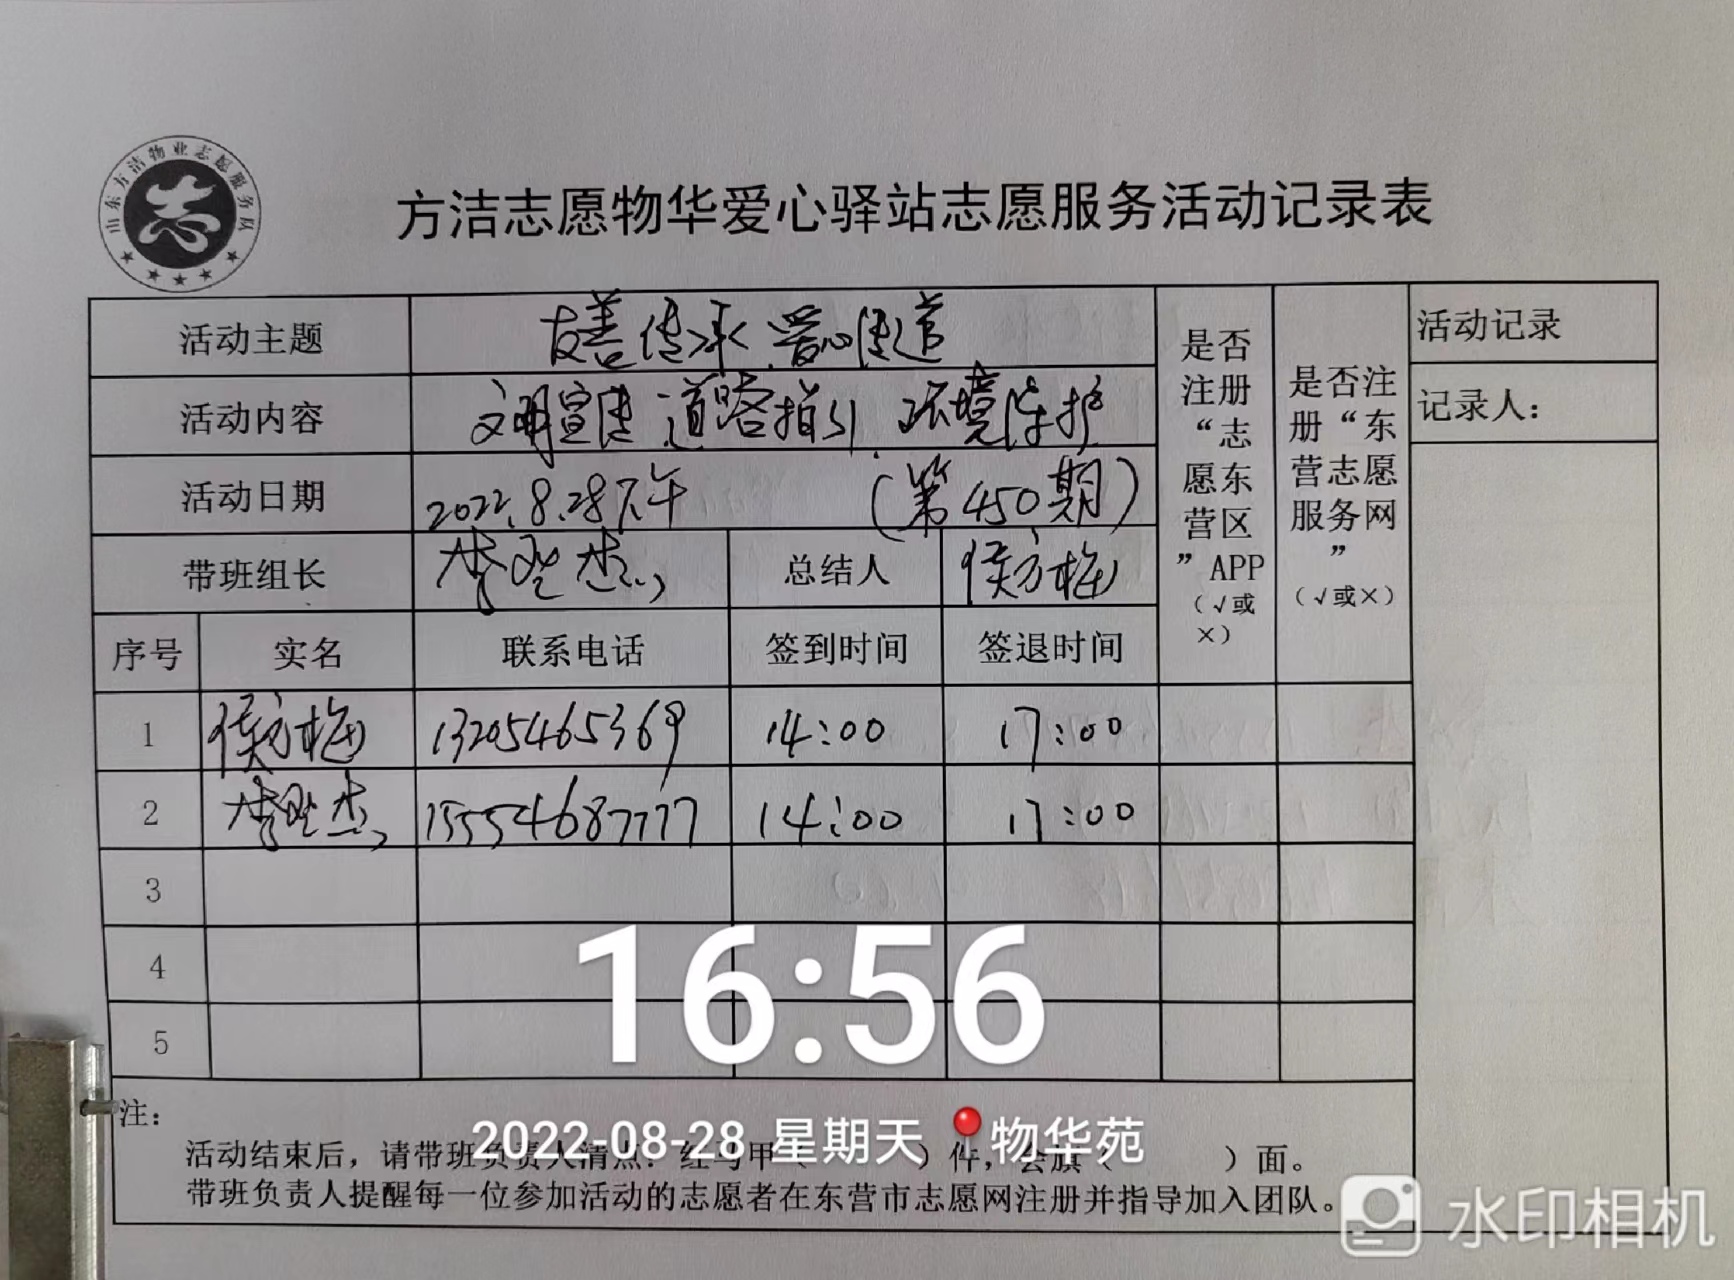 山东方洁物业志愿服务队
志
方洁志愿物华爱心驿站志愿服务活动记录表
活动主题 友善传承 爱心传递
活动内容 文明宣传 道路指引 环境维护
活动日期 2022.8.28下午 (第450期)
带班组长 李 杰 总结人 侯方梅
序号 实名 联系电话 签到时间 签退时间
是否注册“志愿东营区”APP(√或×)
是否注册“东营志愿服务网”(√或×)
活动记录
记录人：
1 侯方梅 13205465369 14:00 17:00
2 李 杰 15554687777 14:00 17:00
3
4
5
16:56
2022-08-28 星期天 物华苑
注：
活动结束后，请带班负责人清点：红马甲（ ）件，会旗（ ）面。
带班负责人提醒每一位参加活动的志愿者在东营市志愿网注册并指导加入团队。
水印相机